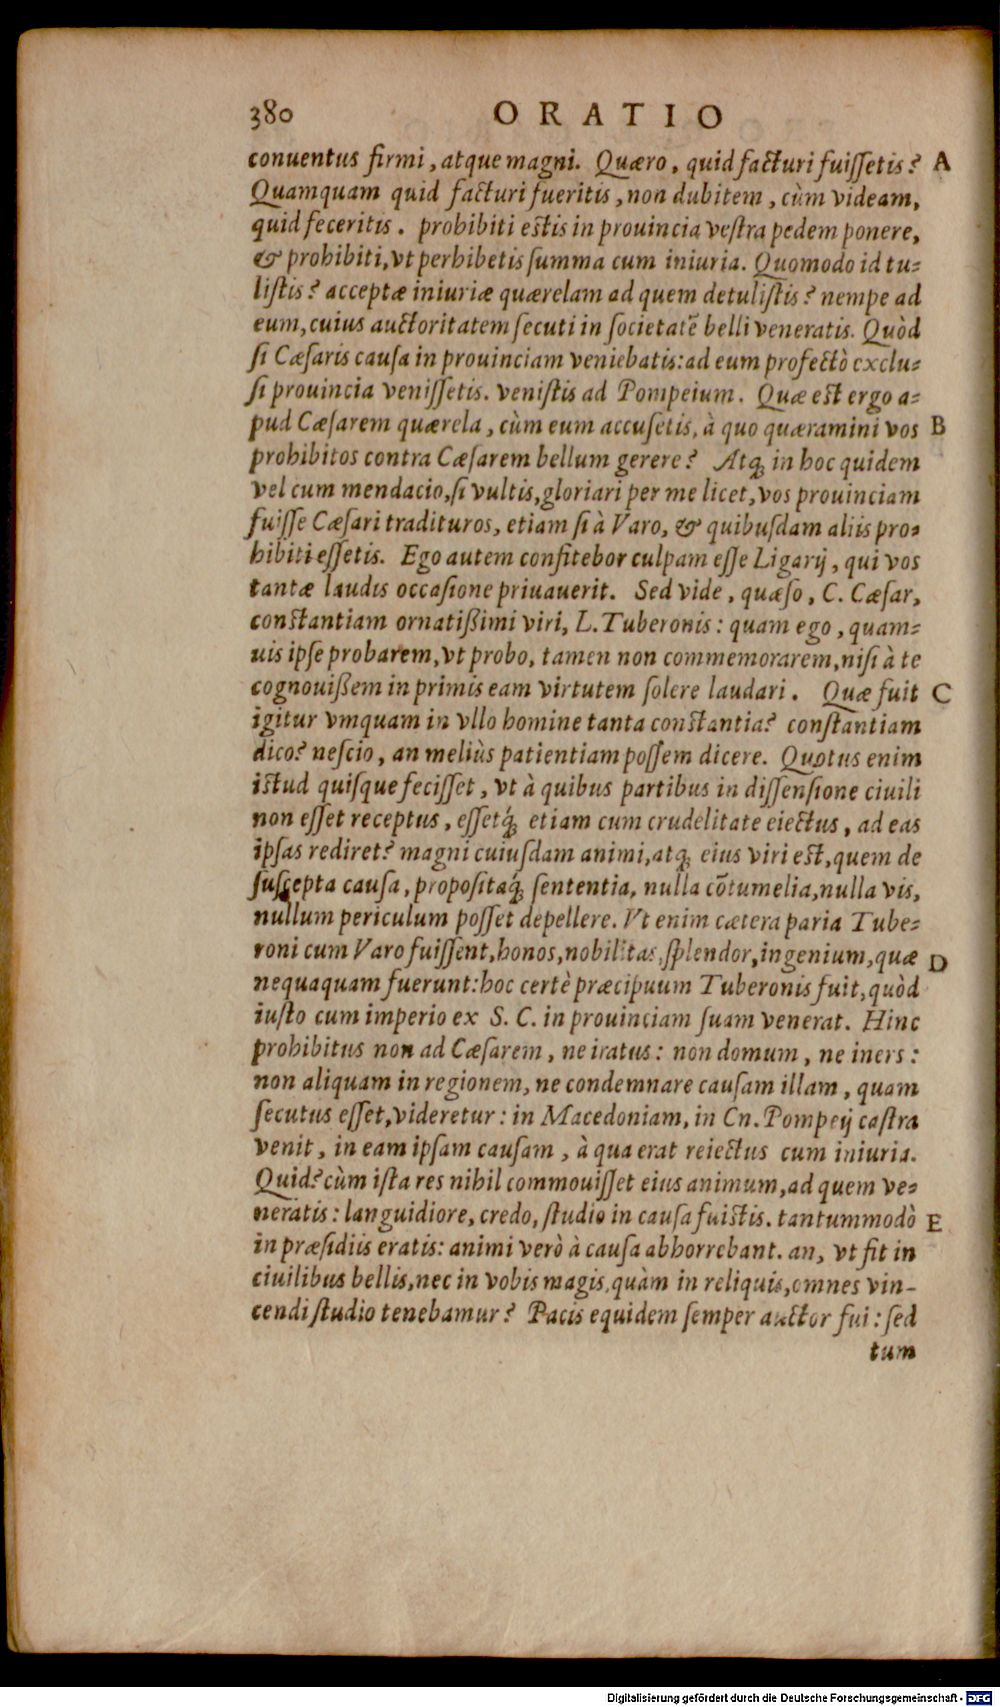 380 ORATIO
conuentus firmi, atque magni. Quæro, quid facturi fuiſſetis? A
Quamquam quid facturi fueritis, non dubitem, cùm videam,
quid feceritis. prohibiti estis in prouincia veſtra pedem ponere,
& prohibiti, vt perhibetis ſumma cum iniuria. Quomodo id tu-
liſtis? acceptæ iniuriæ quærelam ad quem detuliſtis? nempe ad
eum, cuius auctoritatem ſecuti in ſocietatē belli veneratis. Quòd
ſi Cæſaris cauſa in prouinciam veniebatis: ad eum profectò exclu-
ſi prouincia veniſſetis. veniſtis ad Pompeium. Quæ est ergo a-
pud Cæſarem quærela, cùm eum accuſetis, à quo quæramini vos B
prohibitos contra Cæſarem bellum gerere? Atq; in hoc quidem
vel cum mendacio, ſi vultis, gloriari per me licet, vos prouinciam
fuiſſe Cæſari tradituros, etiam ſi à Varo, & quibuſdam aliis pro-
hibiti eſſetis. Ego autem confitebor culpam eſſe Ligarij, qui vos
tantæ laudis occaſione priuauerit. Sed vide, quæſo, C. Cæſar,
constantiam ornatißimi viri, L. Tuberonis: quam ego, quam-
uis ipſe probarem, vt probo, tamen non commemorarem, niſi à te
cognouißem in primis eam virtutem ſolere laudari. Quæ fuit C
igitur vmquam in vllo homine tanta constantia? conſtantiam
dico? neſcio, an meliùs patientiam poſſem dicere. Quotus enim
istud quiſque feciſſet, vt à quibus partibus in diſſenſione ciuili
non eſſet receptus, eſſetq́; etiam cum crudelitate eiectus, ad eas
ipſas rediret? magni cuiuſdam animi, atq; eius viri est, quem de
ſuſcepta cauſa, propoſitaq́; ſententia, nulla cōtumelia, nulla vis,
nullum periculum poſſet depellere. Vt enim cætera paria Tube-
roni cum Varo fuiſſent, honos, nobilitas, ſplendor, ingenium, quæ D
nequaquam fuerunt: hoc certè præcipuum Tuberonis fuit, quòd
iuſto cum imperio ex S. C. in prouinciam ſuam venerat. Hinc
prohibitus non ad Cæſarem, ne iratus: non domum, ne iners:
non aliquam in regionem, ne condemnare cauſam illam, quam
ſecutus eſſet, videretur: in Macedoniam, in Cn. Pompeij caſtra
venit, in eam ipſam cauſam, à qua erat reiectus cum iniuria.
Quid? cùm iſta res nihil commouiſſet eius animum, ad quem ve-
neratis: languidiore, credo, ſtudio in cauſa fuistis. tantummodò E
in præſidiis eratis: animi verò à cauſa abhorrebant. an, vt fit in
ciuilibus bellis, nec in vobis magis, quàm in reliquis, omnes vin-
cendi ſtudio tenebamur? Pacis equidem ſemper auctor fui: ſed
tum
Digitalisierung gefördert durch die Deutsche Forschungsgemeinschaft - DFG